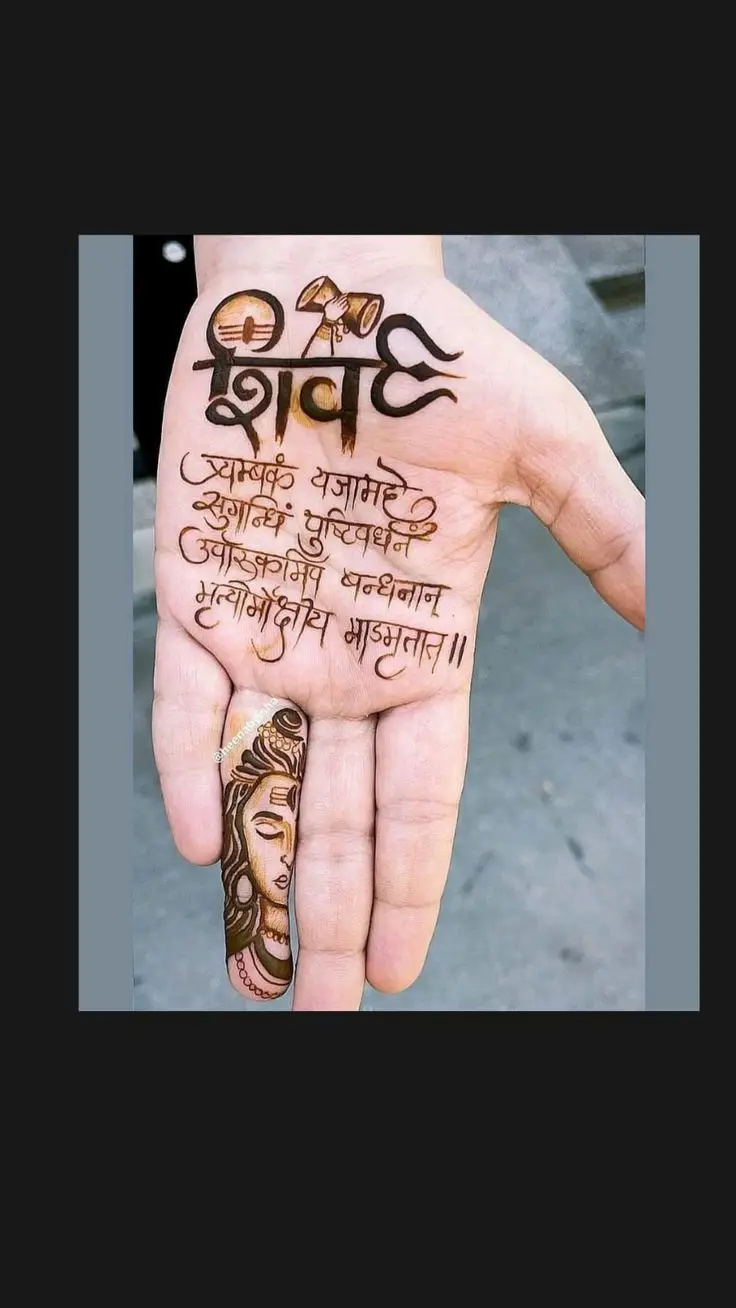 शिव
त्र्यम्बकं यजामहे
सुगन्धिं पुष्टिवर्धनं
उर्वारुकमिव बन्धनान्
मृत्योर्मोक्षीय माऽमृतात् ॥